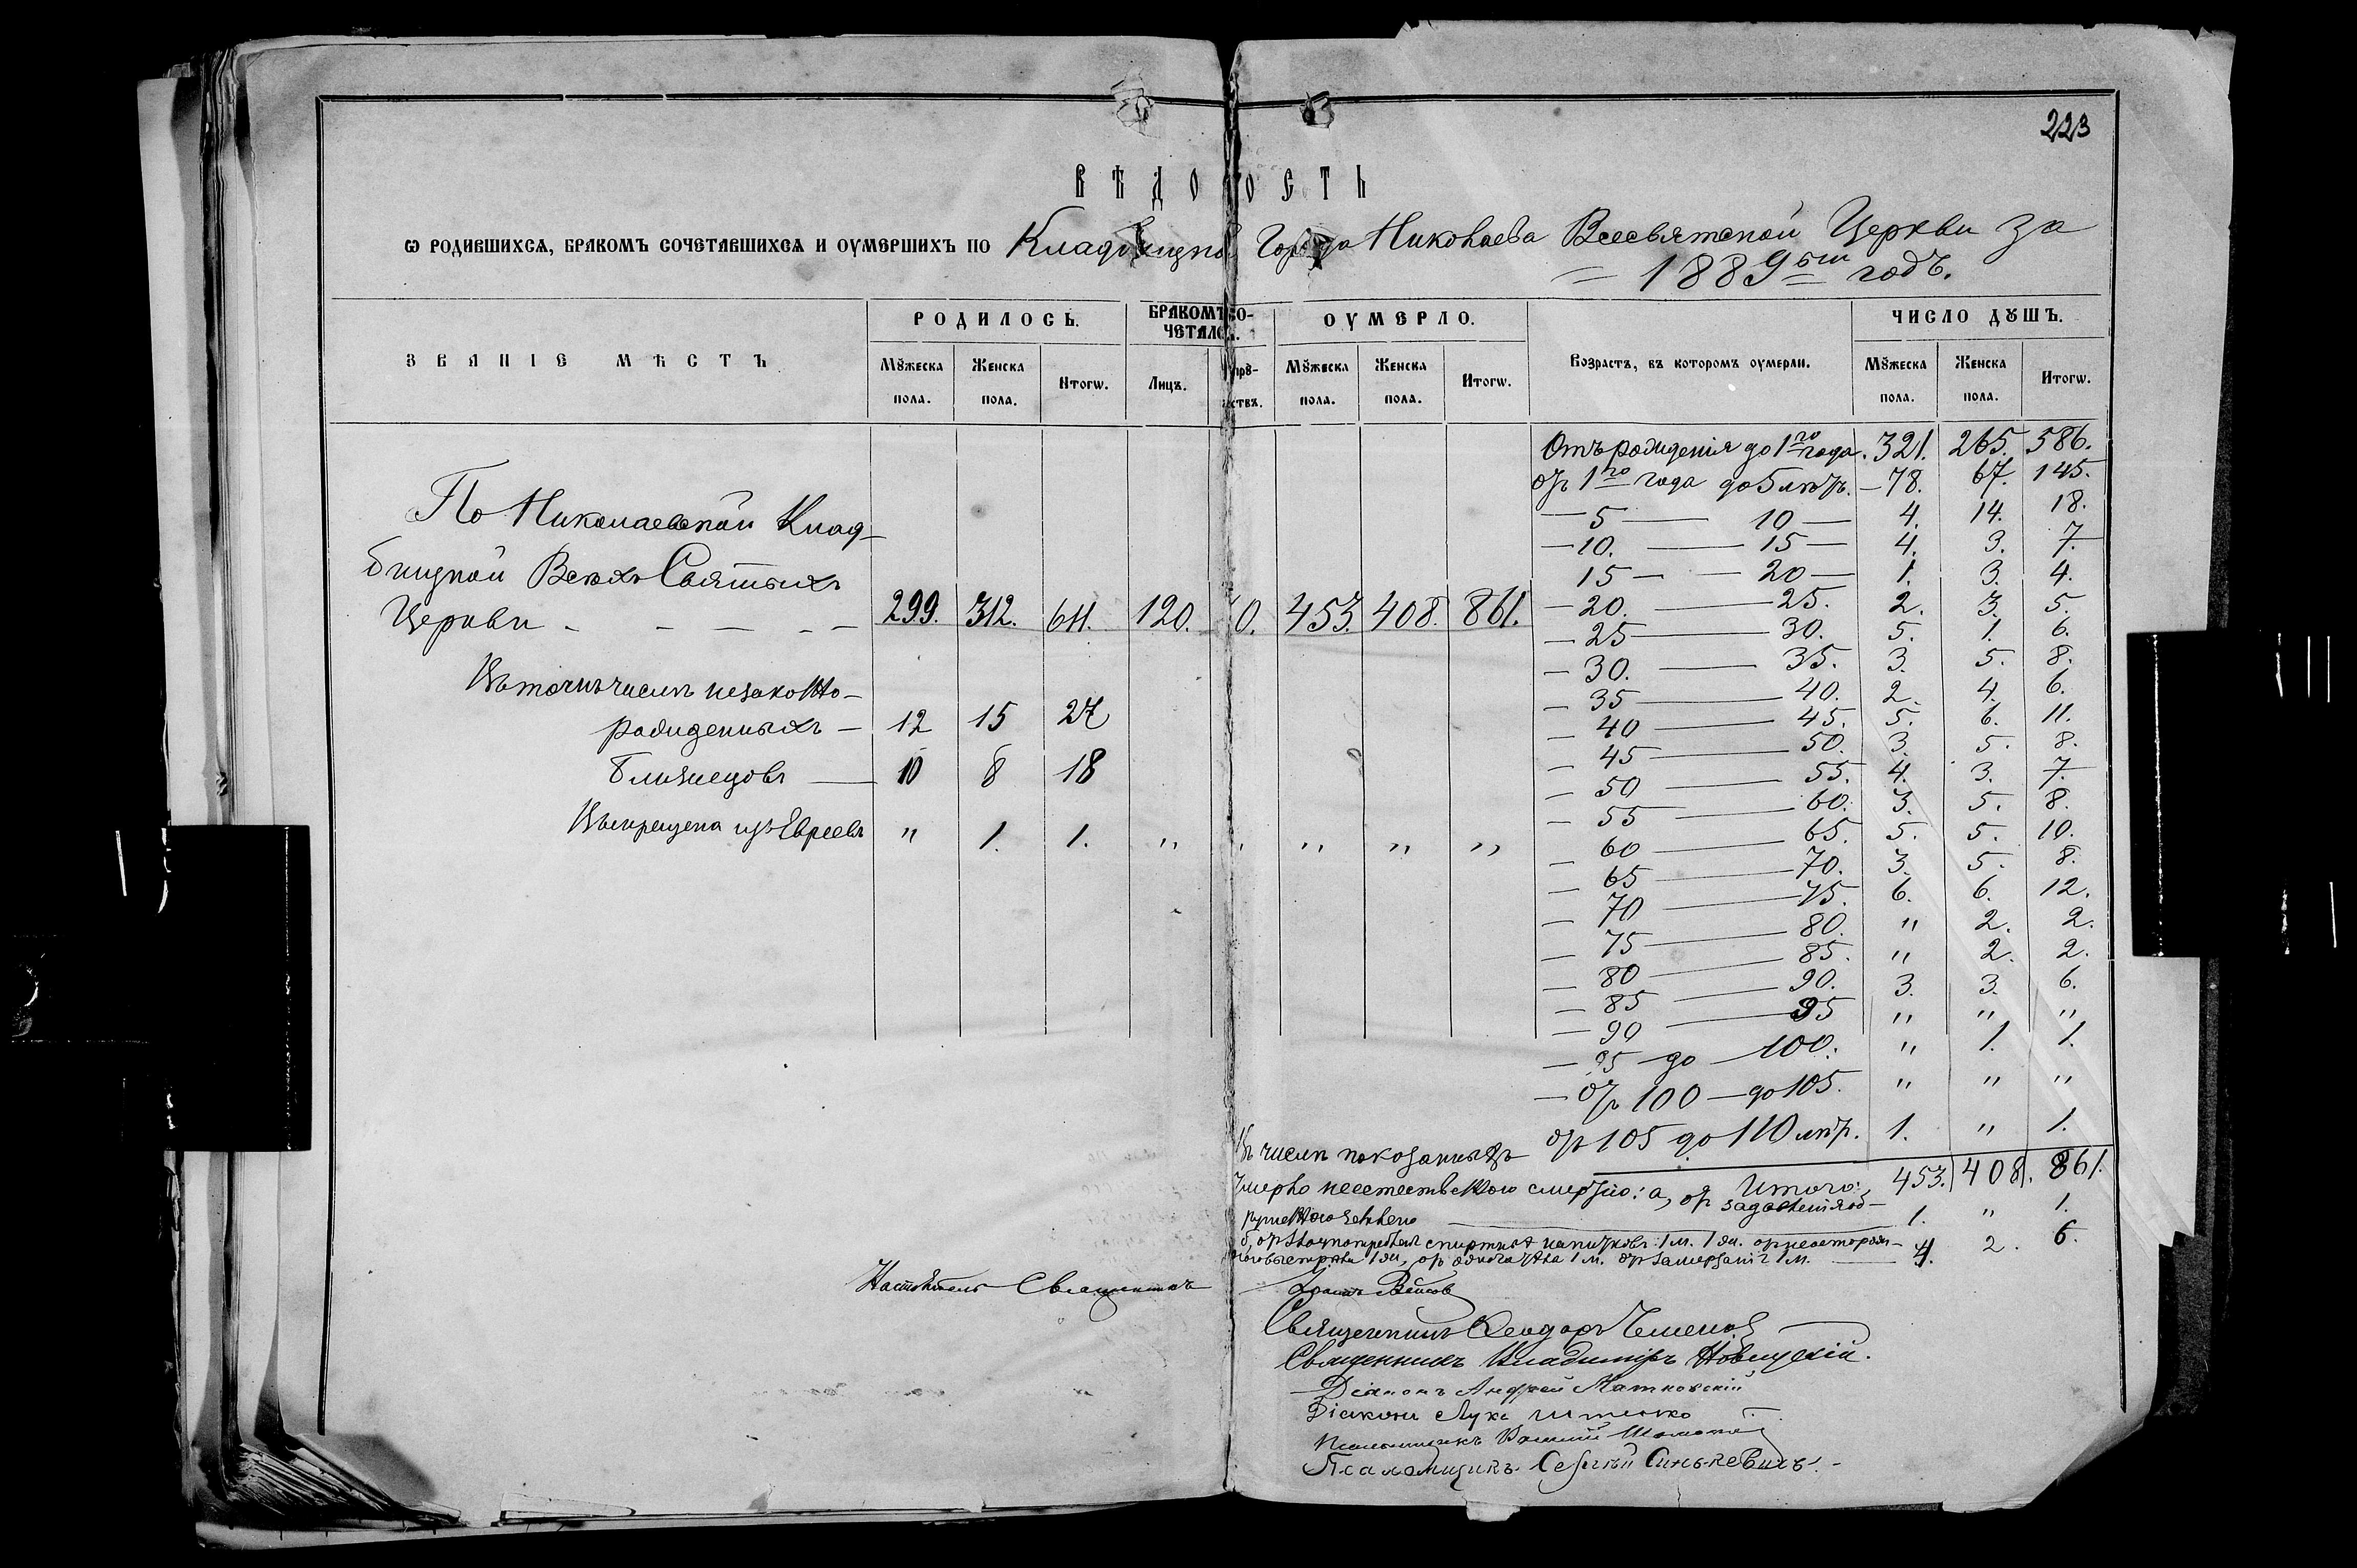 223
ВѢДОМОСТЬ
Ѡ РОДИВШИХСѦ, БРАКОМЪ СОЧЕТАВШИХСѦ И ОУМЕРШИХЪ ПО Кладбищной Города Николаева Всесвятской Церкви за
1889ый годъ.
ЗВАНІЕ МѢСТЪ
РОДИЛОСЬ.
БРАКОМЪ СО-
ЧЕТАЛОСЬ.
ОУМЕРЛО.
Возрастъ, въ которомъ оумерли.
ЧИСЛО ДꙊШЪ.
МꙋжескА пола. ЖенскА пола. Итогѡ. Лицъ. Сꙋпрꙋ-жествъ. МꙋжескА пола. ЖенскА пола. Итогѡ. МꙋжескА пола. ЖенскА пола. Итогѡ.
По Николаевской Клад-
бищной Всѣхъ Святыхъ
Церкви - - - - - 299. 312. 611. 120. 60. 453. 408. 861.
Въ томъ числѣ незаконно-
рожденныхъ — 12 15 27
Близнецовъ — 10 8 18
Выкрещена изъ Евреевъ " 1. 1. " " " " "
Отъ рожденія до 1го года. 321. 265. 586.
отъ 1го года до 5 лѣтъ. — 78. 67. 145.
— 5 — 10 — 4. 14. 18.
— 10. — 15 — 4. 3. 7.
15 — — 20 — 1. 3. 4.
— 20. — 25. 2. 3. 5.
— 25 — 30. 5. 1. 6.
— 30. — 35. 3. 5. 8.
— 35 — 40. 2. 4. 6.
— 40 — 45. 5. 6. 11.
— 45 — 50. 3. 5. 8.
— 50 — 55. 4. 3. 7.
— 55 — 60. 3. 5. 8.
— 60 — 65. 5. 5. 10.
— 65 — 70. 3. 5. 8.
— 70 — 75. 6. 6. 12.
— 75 — 80. " 2. 2.
— 80 — 85. " 2. 2.
— 85 — 90. 3. 3. 6.
— 90 — 95 " " "
— 95 до — 100. " 1. 1.
— отъ 100 — до 105. " " "
отъ 105 до 110 лѣтъ. 1. " 1.
Итого: 453. 408. 861.
Въ числѣ показанныхъ
Умерло неестественною смертію: а, отъ задавленія об-
рушенною землею — 1. " 1.
б, отъ злоупотребленія спиртныхъ напитковъ: 1 м. 1 ж. отъ неосторож-
1 ж, отъ 1 м. отъ замерзанія 1 м. — 4. 2. 6.
Настоятель Священникъ
Священникъ Ѳеодоръ
Священникъ Владиміръ Новицкій.
Діаконъ Андрей Матковскій
Діаконъ Лука
Псаломщикъ
Псаломщикъ Сергѣй Синькевичъ.